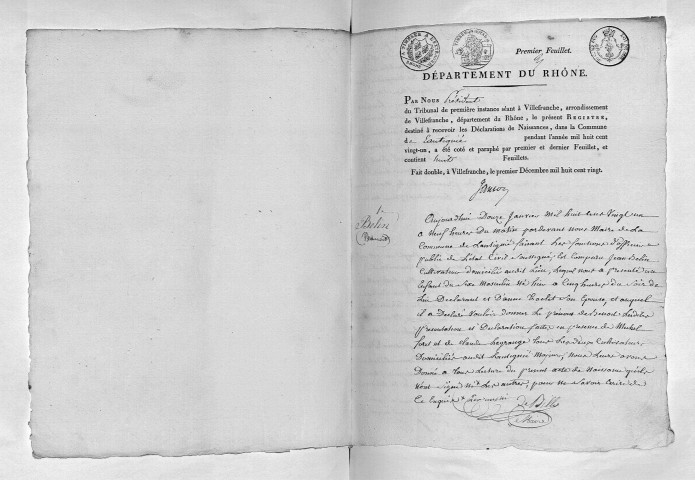 Premier Feuillet.
DÉPARTEMENT DU RHÔNE.
PAR NOUS Président
du Tribunal de première instance séant à Villefranche, arrondissement
de Villefranche, département du Rhône, le présent REGISTRE,
destiné à recevoir les Déclarations de Naissances, dans la Commune
de Lantignié pendant l'année mil huit cent
vingt-un, a été coté et paraphé par premier et dernier Feuillet, et
contient huit Feuillets.
Fait double, à Villefranche, le premier Décembre mil huit cent vingt.
1
Aujourd'hui Douze Janvier mil huit cent vingt un
a neuf heures du matin pardevant nous Maire de La
Commune de Lantignié faisant les fonctions d'officier
public de l'état Civil Soussigné, est comparu Jean
Cultivateur domicilié audit Lieu, lequel nous a présenté un
Enfant du sexe masculin né hier a Cinq heures du Soir de
lui Déclarant et D'anne Son Epouse, et auquel
il a Déclaré vouloir donner le prénom de Benoit Lesdites
présentation et Déclaration faites en présence de Michel
et de Claude Lagrange tous les deux Cultivateurs
Domiciliés audit Lantignié Majeurs, nous Leure avons
Donné a tous Lecture du présent acte de naissance qu'ils
nont signé ni Les autres, pour ne Savoir écrire de
Ce enquis
Maire